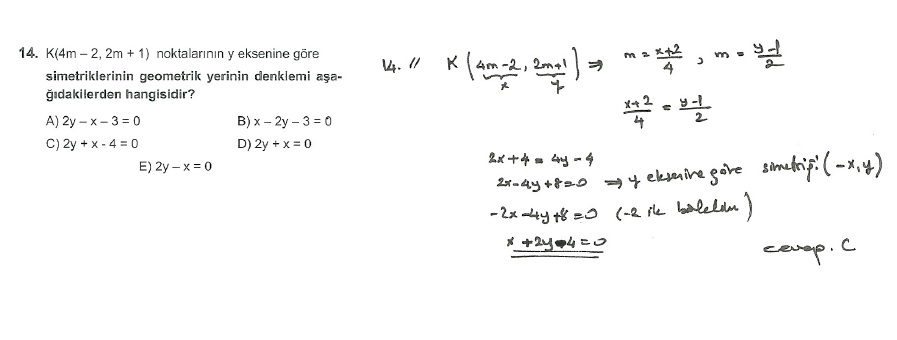 14. K(4m – 2, 2m + 1) noktalarının y eksenine göre
simetriklerinin geometrik yerinin denklemi aşa-
ğıdakilerden hangisidir?
A) 2y – x – 3 = 0 B) x – 2y – 3 = 0
C) 2y + x - 4 = 0 D) 2y + x = 0
E) 2y – x = 0
14. // K(4m-2, 2m+1) ⇒ m = x+2/4 , m = y-1/2
x y
x+2/4 = y-1/2
2x+4 = 4y-4
2x-4y+8=0 ⇒ y eksenine göre simetriği (-x,y)
-2x-4y+8=0 (-2 ile bölelim)
x+2y-4=0
cevap. C